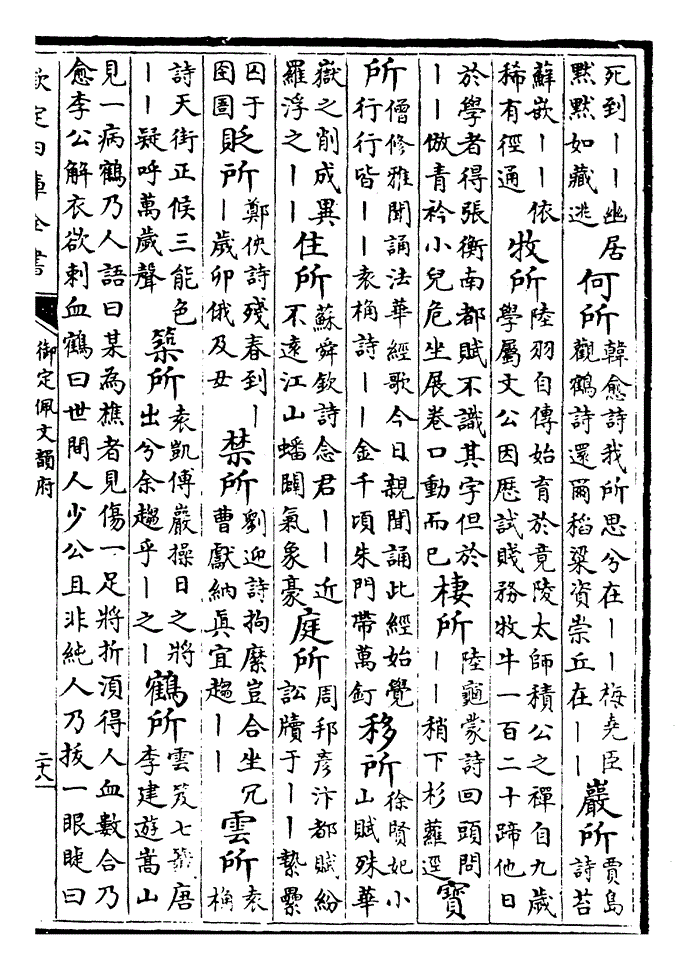 死到丨丨幽居默默如藏逃何所韓愈詩我所思兮在丨丨梅堯臣觀鶴詩還爾稻粱資崇丘在丨丨巖所賈島詩苔
蘚嵌丨丨依稀有徑通牧所陸羽自傳始育於竟陵太師積公之禪自九歲學屬文公因歷試賤務牧牛一百二十蹄他日
於學者得張衡南都賦不識其字但於丨丨倣青衿小兒危坐展卷口動而已棲所陸龜蒙詩回頭問丨丨稍下杉蘿逕寶
所僧修雅聞誦法華經歌今日親聞誦此經始覺行行皆丨丨袁桷詩丨丨金千頃朱門帶萬釘移所徐賢妃小山賦殊華
嶽之削成異羅浮之丨丨住所蘇舜欽詩念君丨丨近不遠江山蟠闊氣象豪庭所周邦彦汴都賦紛訟牘于丨丨縶纍
囚于囹圄貶所鄭俠詩殘春到丨丨歲卯俄及丑禁所劉迎詩拘縻豈合坐冗曹獻納眞宜趨丨丨雲所袁桷
詩天街正候三能色丨丨疑呼萬歲聲築所袁凱傅巖操日之將出兮余趨乎丨之丨鶴所雲笈七籤唐李建遊嵩山
見一病鶴乃人語曰某為樵者見傷一足將折湏得人血數合乃愈李公解衣欲刺血鶴曰世間人少公且非純人乃拔一眼睫曰
欽定四庫全書
御定佩文韻府
二十八